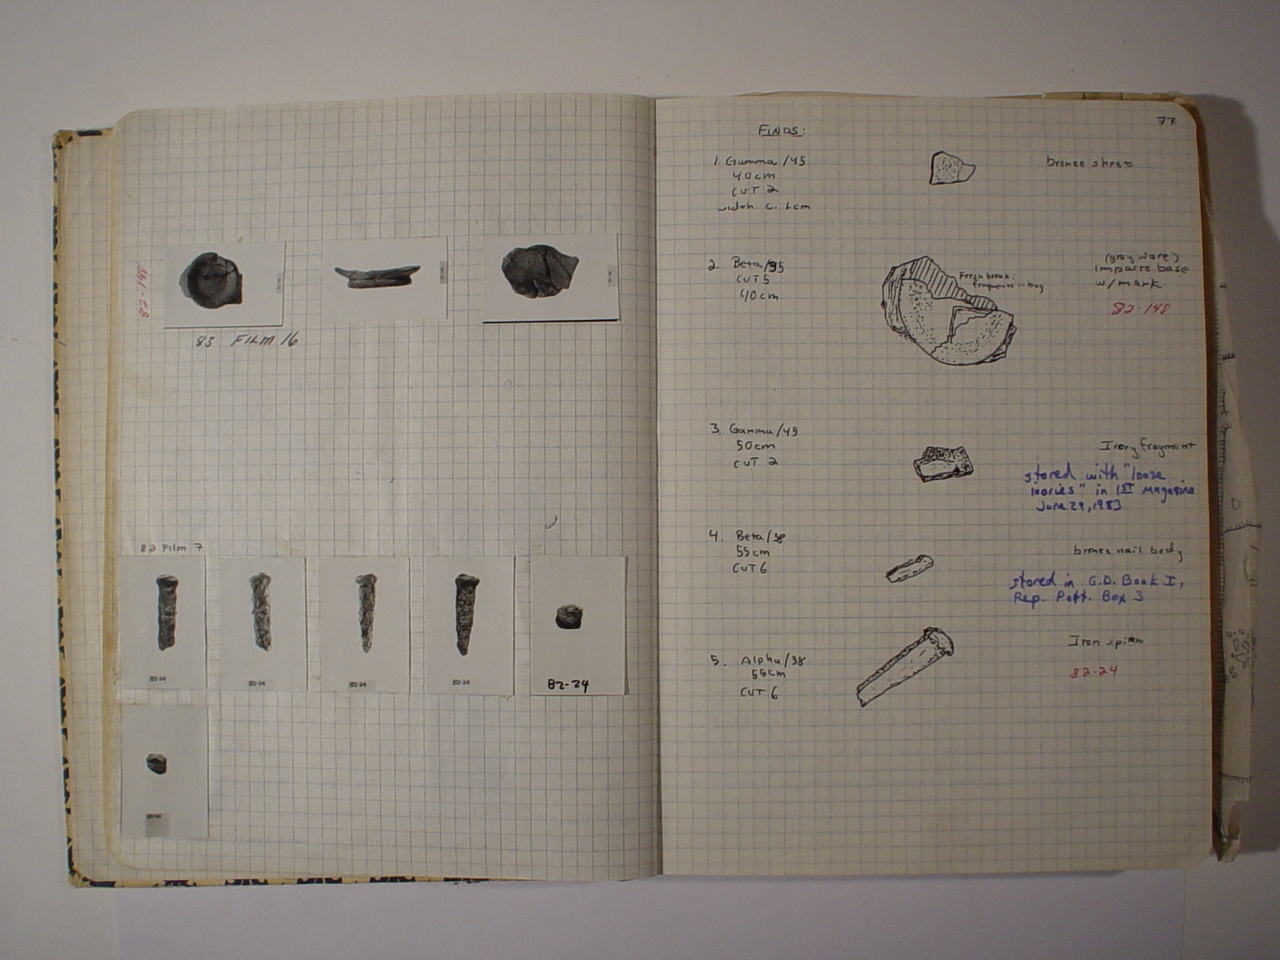 82-148
83 FILM 16
82 Film 7
82-24
82-24
82-24
82-24
82-24
82-24
77
FINDS:
1. Gamma/45
40cm
CUT 2
width c. 1cm
bronze sheet
2. Beta/35
CUT 5
40cm
Fresh break:
fragments in bag
(gray ware)
impasto base
w/mark
82-148
3. Gamma/45
50cm
CUT 2
Ivory fragment
stored with "loose
ivories" in 1ST Magazine
June 29, 1983
4. Beta/38
55cm
CUT 6
bronze nail body
stored in G.D. Book I,
Rep. Pott. Box 3
5. Alpha/38
55cm
CUT 6
Iron
82-24